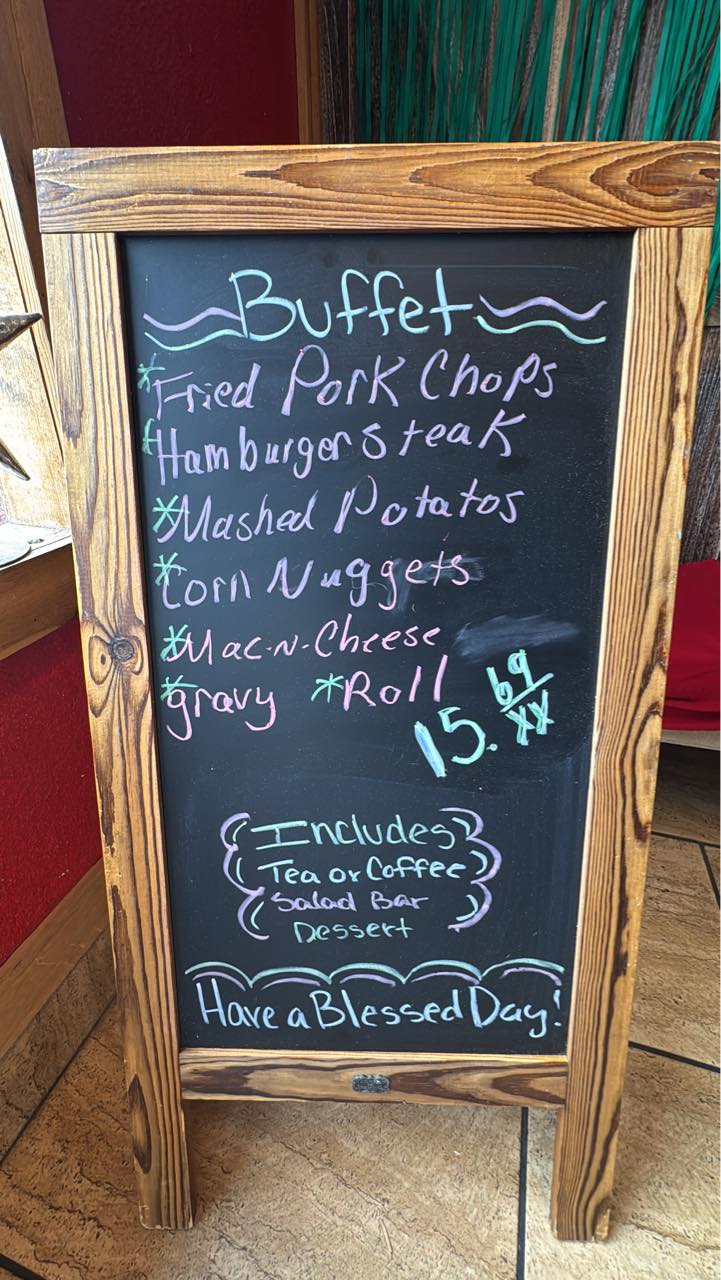 Buffet
*Fried Pork Chops
*Hamburger Steak
*Mashed Potatos
*Corn Nuggets
*Mac-N-Cheese
*gravy *Roll
15. 69/XX
Includes
Tea or Coffee
Salad Bar
Dessert
Have a Blessed Day!